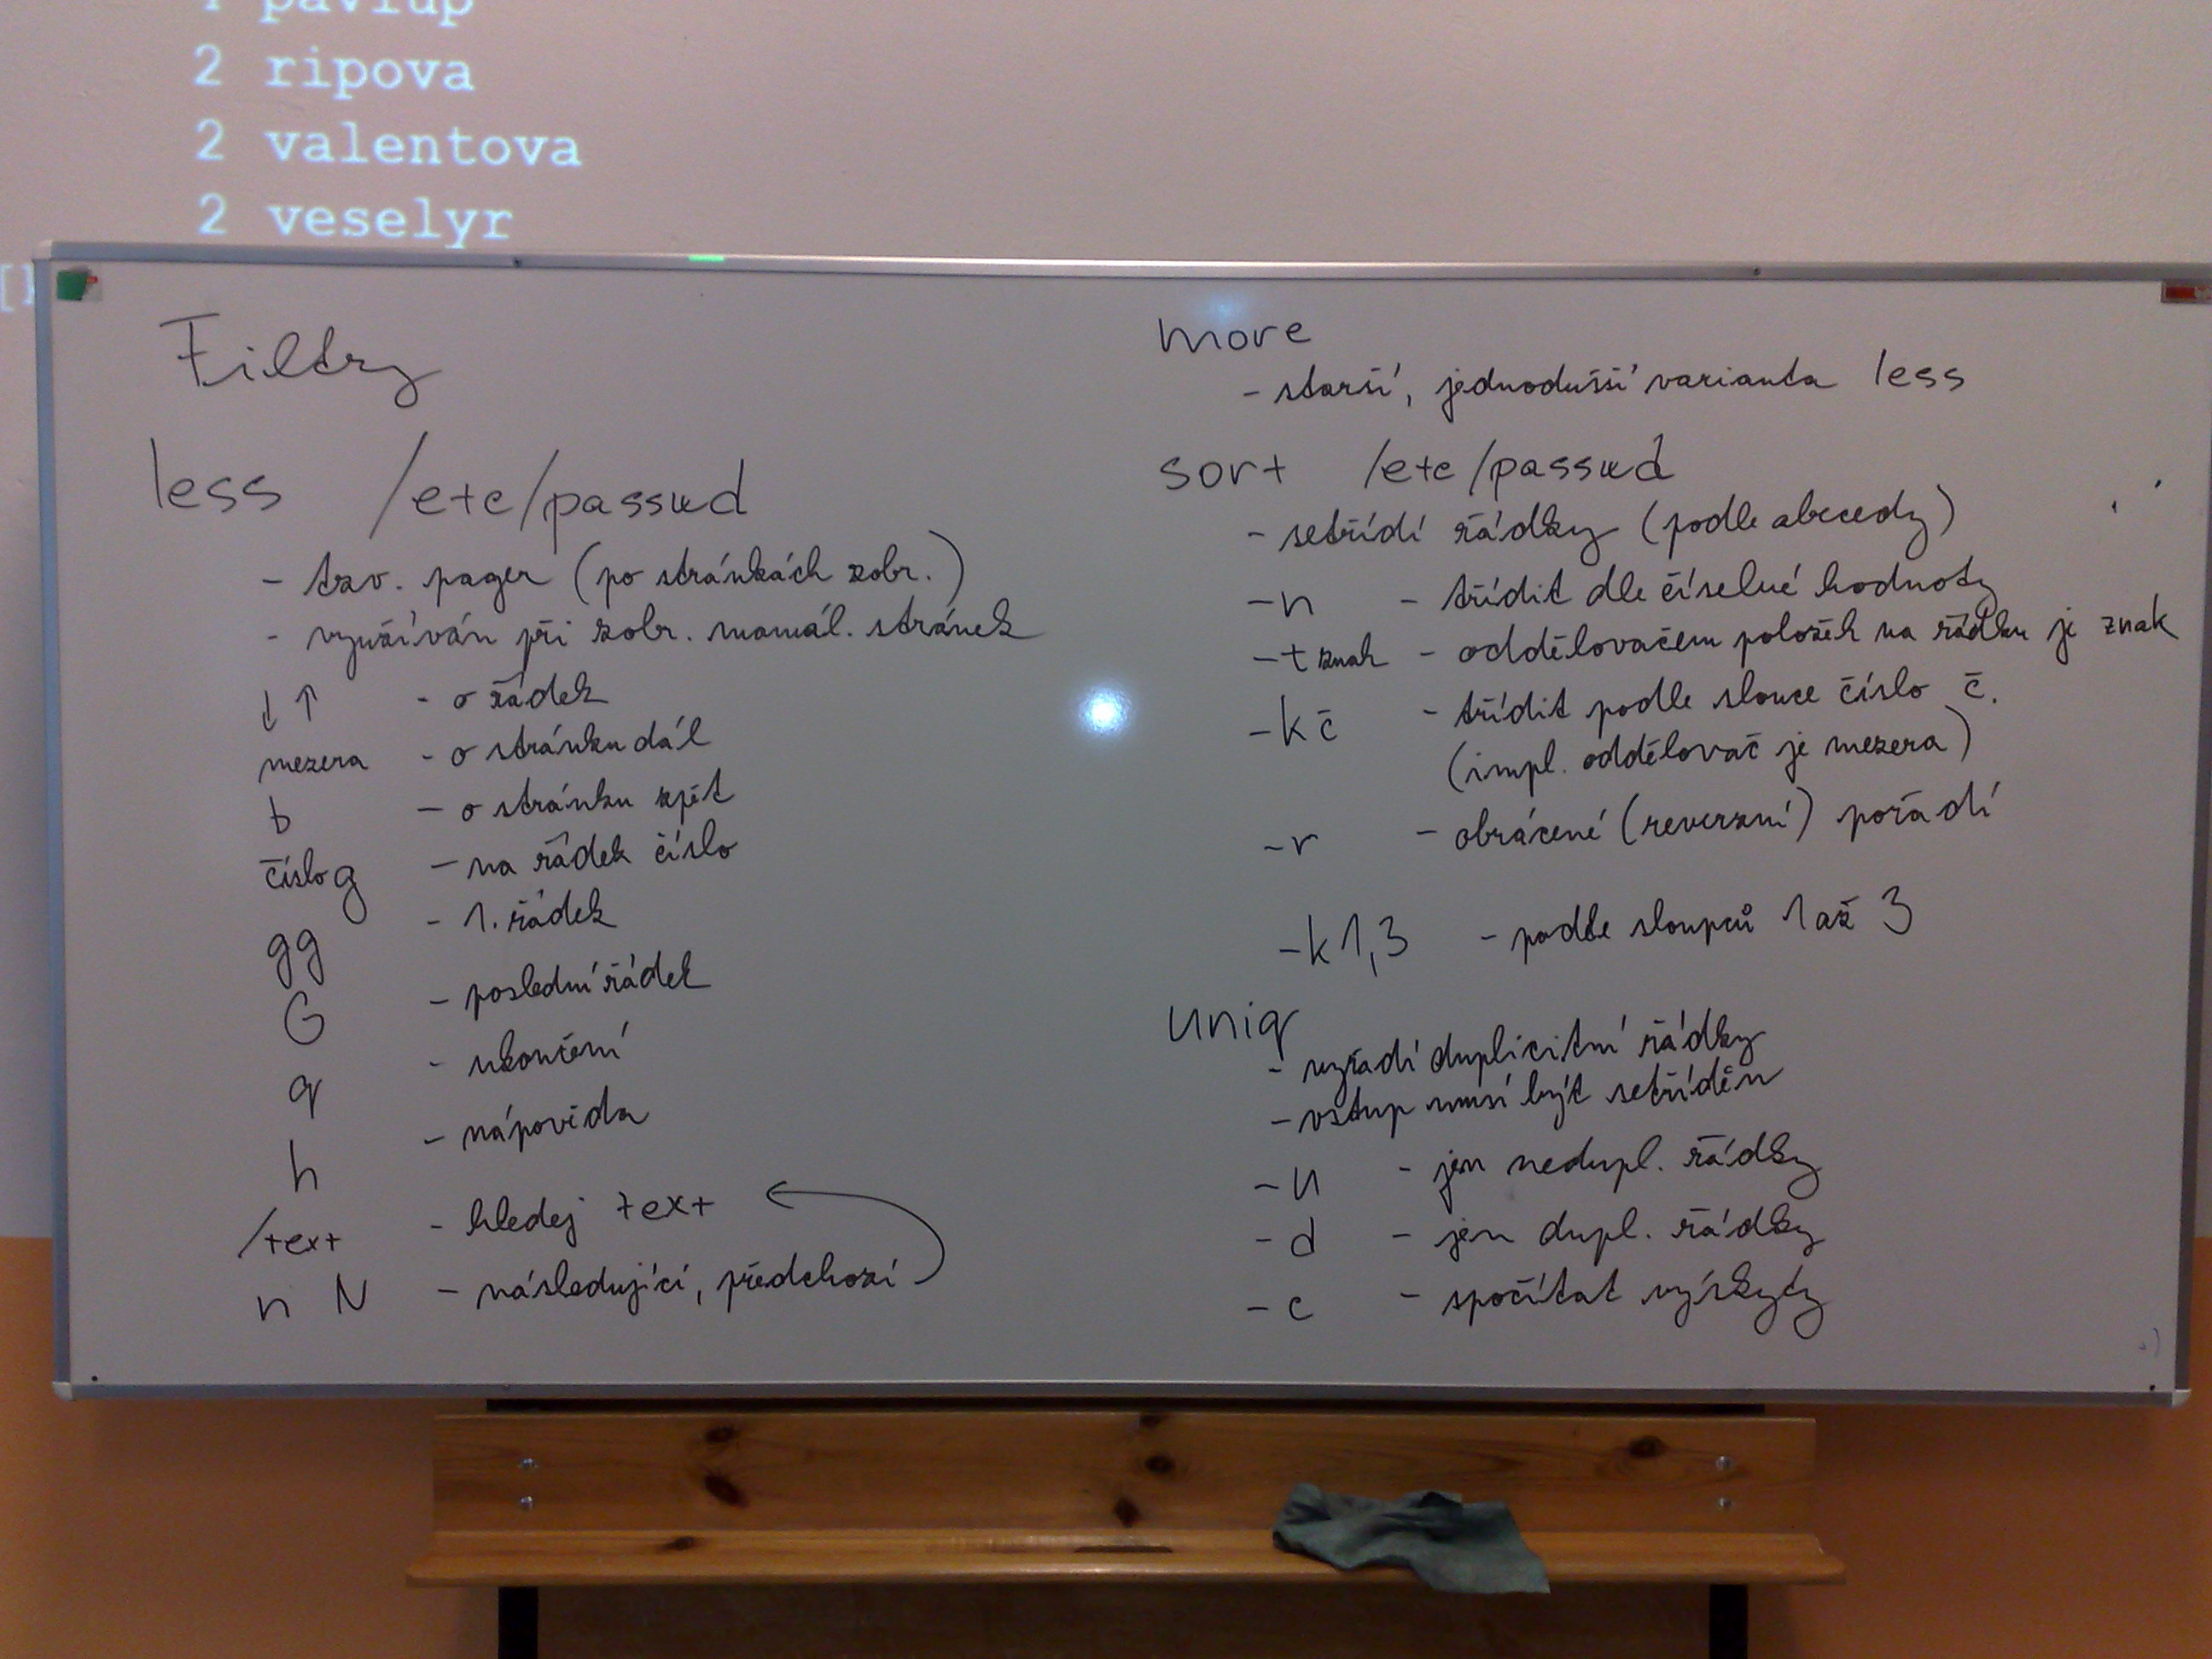 pavlup
2 ripova
2 valentova
2 veselyr
Filtry
less /etc/passwd
- tzv. pager (po stránkách zobr.)
- využíván při zobr. manuál. stránek
↓ ↑ - o řádek
mezera - o stránku dál
b - o stránku zpět
číslo g - na řádek číslo
gg - 1. řádek
G - poslední řádek
q - ukončení
h - nápověda
/text - hledej text
n N - následující, předchozí
more
- starší, jednodušší varianta less
sort /etc/passwd
- setřídí řádky (podle abecedy)
-n - třídit dle číselné hodnoty
-t znak - oddělovačem položek na řádku je znak
-k č - třídit podle slouce číslo č.
(impl. oddělovač je mezera)
-r - obrácené (reverzní) pořadí
-k 1,3 - podle sloupců 1 až 3
uniq
- vyřadí duplicitní řádky
- vstup musí být setříděn
-u - jen nedupl. řádky
-d - jen dupl. řádky
-c - spočítat výskyty